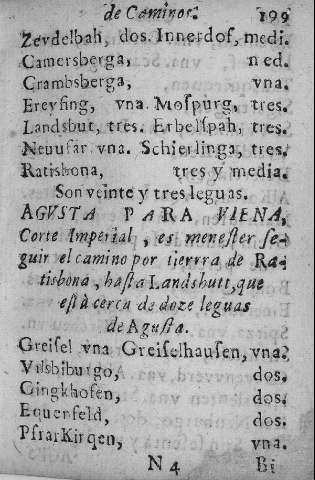 de Caminos. 199
Zevdelbah, dos. Innerdof, medi.
Camersberga, n ed.
Crambsberga, vna.
Ereyſing, vna. Moſpurg, tres.
Landsbut, tres. Erbelſpah, tres.
Neuufar vna. Schierlinga, tres.
Ratisbona, tres y media.
Son veinte y tres leguas.
AGVSTA PARA VIENA,
Corte Imperial, es meneſter ſe-
guir el camino por tierrra de Ra-
tisbona, haſta Landshutt, que
eſtà cerca de doze leguas
de Aguſta.
Greiſel vna Greiſelhauſen, vna.
Vilsbiburgo, dos.
Gingkhofen, dos.
Equenfeld, dos.
PfrarKirqen, vna.
N 4 Bi